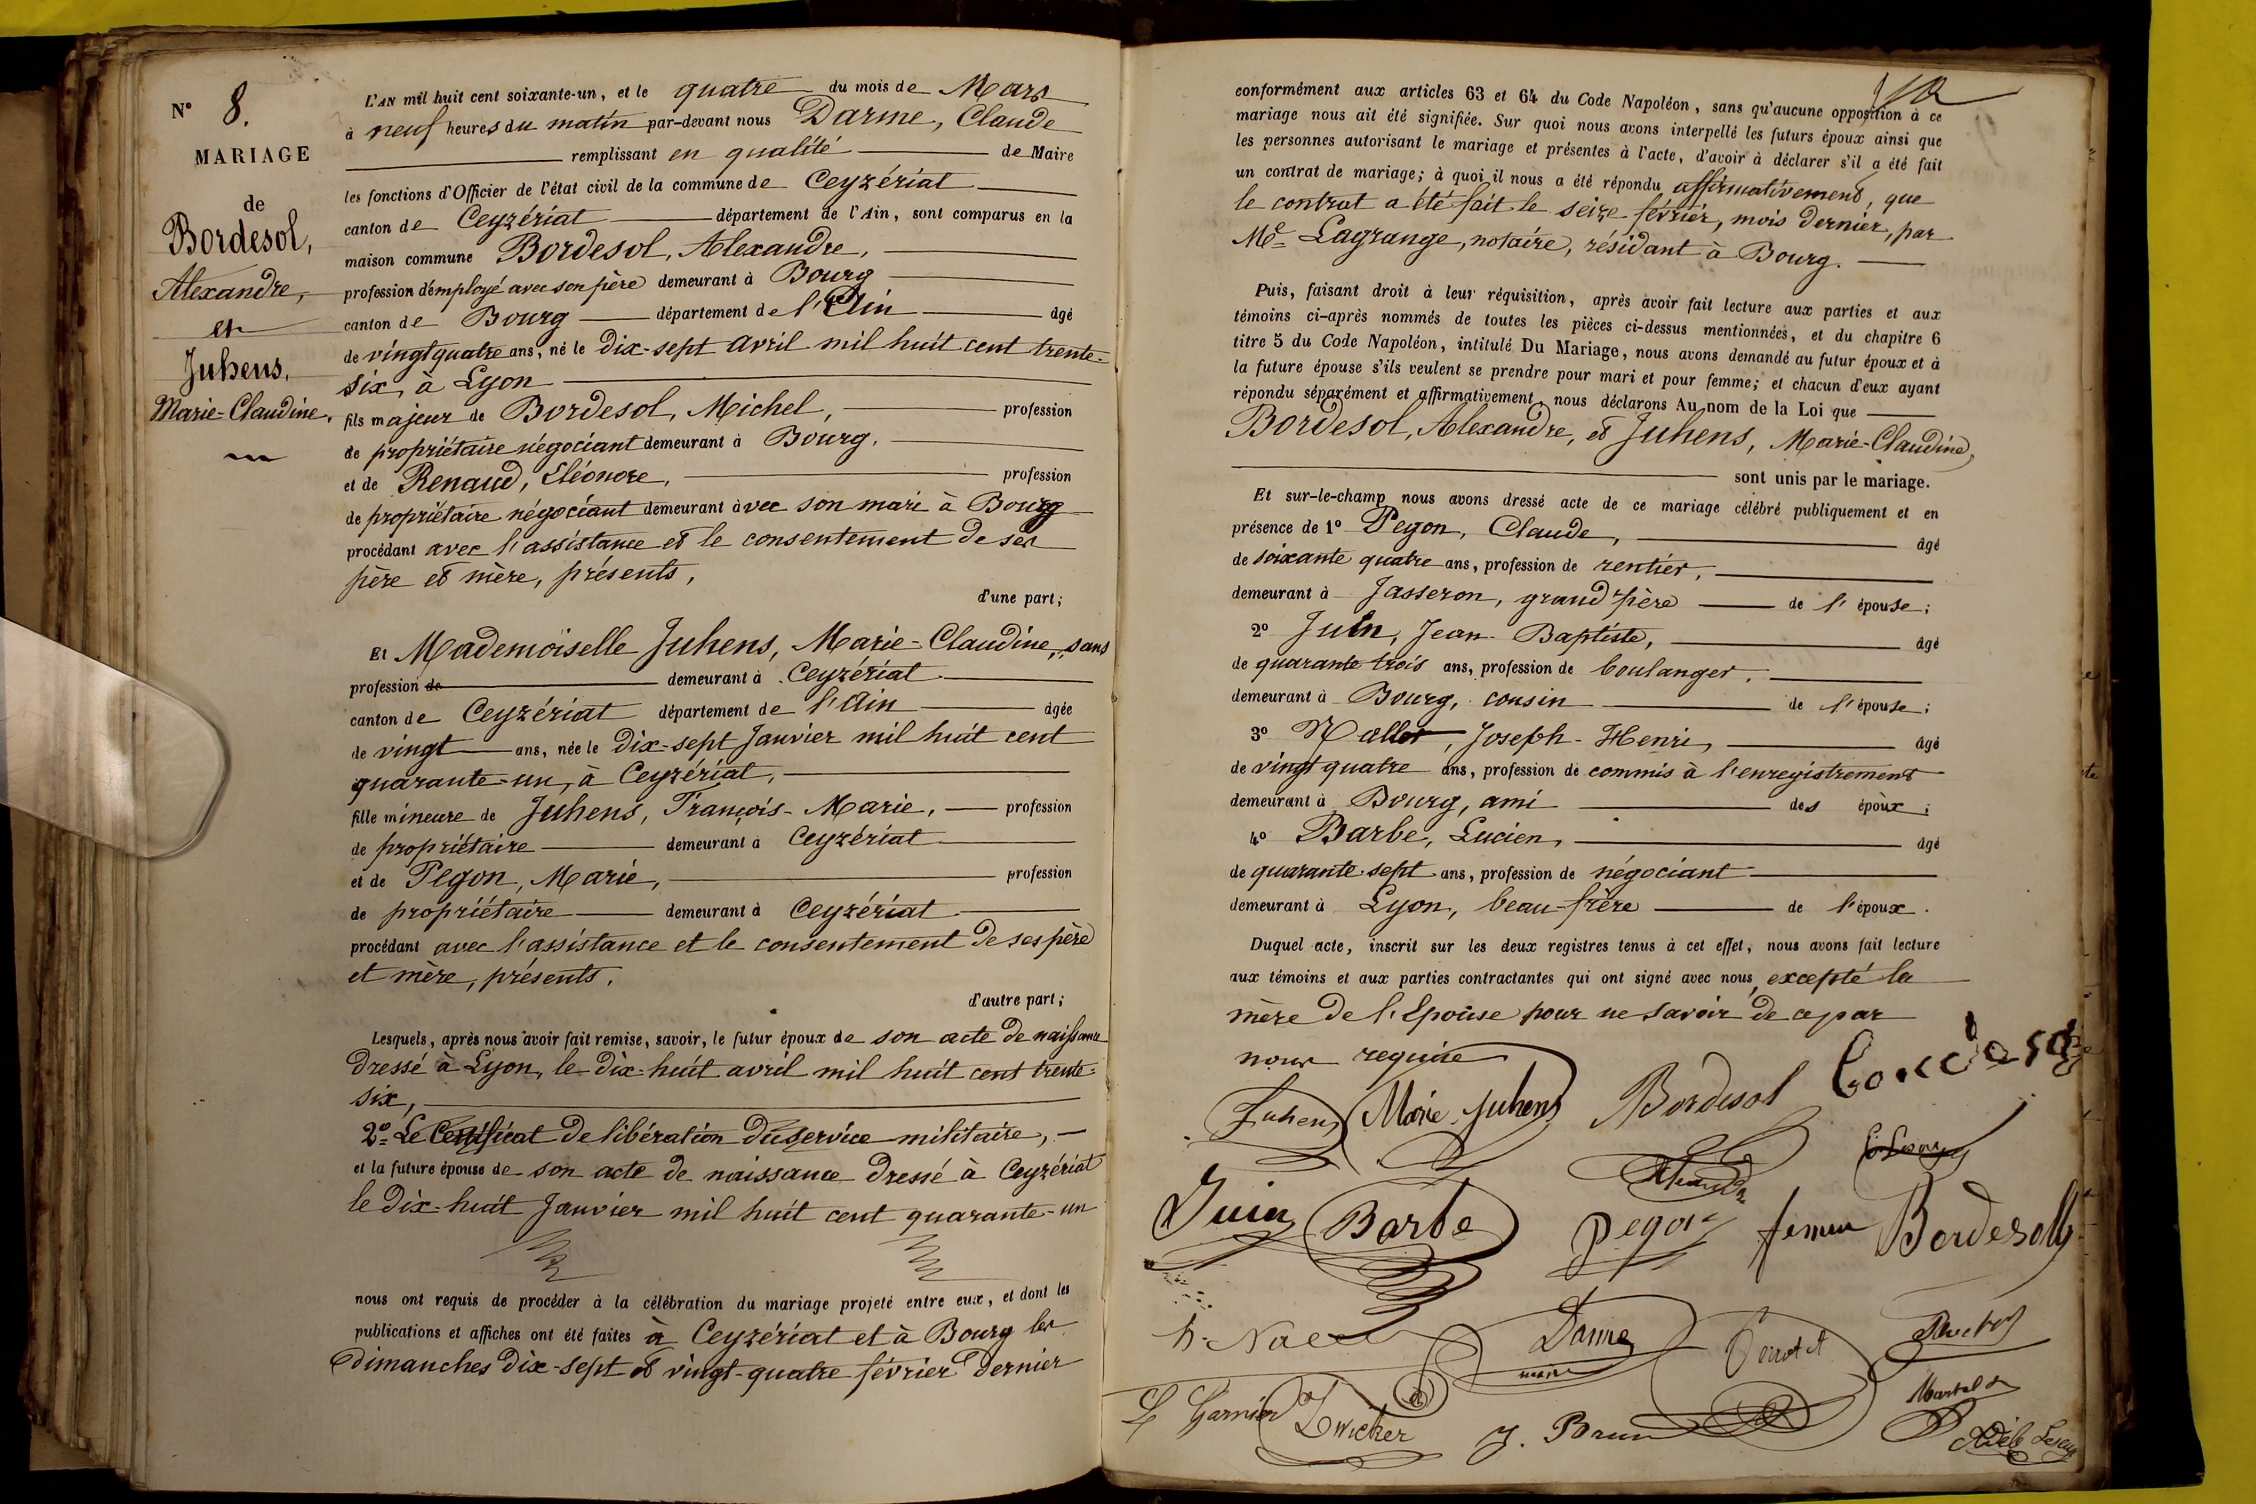 N° 8.
MARIAGE
de
Bordesol,
Alexandre,
et
Juhens,
Marie-Claudine,
L'AN mil huit cent soixante-un, et le quatre du mois de Mars
à neuf heures du matin par-devant nous Darme, Claude
remplissant en qualité de Maire
les fonctions d'Officier de l'état civil de la commune de Ceyzériat
canton de Ceyzériat département de l'Ain, sont comparus en la
maison commune Bordesol, Alexandre,
profession d'employé avec son père demeurant à Bourg
canton de Bourg département de l'Ain âgé
de vingt quatre ans, né le dix-sept avril mil huit cent trente-
six, à Lyon
fils majeur de Bordesol, Michel, profession
de propriétaire négociant demeurant à Bourg.
et de Renaud, Eléonore, profession
de propriétaire négociant demeurant avec son mari à Bourg
procédant avec l'assistance et le consentement de ses
père et mère, présents,
d'une part;
Et Mademoiselle Juhens, Marie-Claudine, sans
profession de demeurant à Ceyzériat
canton de Ceyzériat département de l'Ain âgée
de vingt ans, née le dix-sept Janvier mil huit cent
quarante-un, à Ceyzériat,
fille mineure de Juhens, François-Marie, profession
de propriétaire demeurant à Ceyzériat
et de Pegon, Marie, profession
de propriétaire demeurant à Ceyzériat
procédant avec l'assistance et le consentement de ses père
et mère, présents.
d'autre part;
Lesquels, après nous avoir fait remise, savoir, le futur époux de son acte de naissance
dressé à Lyon, le dix-huit avril mil huit cent trente-
six,
2° Le Certificat de libération du service militaire,
et la future épouse de son acte de naissance dressé à Ceyzériat
le dix-huit Janvier mil huit cent quarante-un
nous ont requis de procéder à la célébration du mariage projeté entre eux, et dont les
publications et affiches ont été faites à Ceyzériat et à Bourg les
dimanches dix-sept et vingt-quatre février dernier
conformément aux articles 63 et 64 du Code Napoléon, sans qu'aucune opposition à ce
mariage nous ait été signifiée. Sur quoi nous avons interpellé les futurs époux ainsi que
les personnes autorisant le mariage et présentes à l'acte, d'avoir à déclarer s'il a été fait
un contrat de mariage; à quoi il nous a été répondu affirmativement, que
le contrat a été fait le seize février, mois dernier, par
Me Lagrange, notaire, résidant à Bourg.
Puis, faisant droit à leur réquisition, après avoir fait lecture aux parties et aux
témoins ci-après nommés de toutes les pièces ci-dessus mentionnées, et du chapitre 6
titre 5 du Code Napoléon, intitulé Du Mariage, nous avons demandé au futur époux et à
la future épouse s'ils veulent se prendre pour mari et pour femme; et chacun d'eux ayant
répondu séparément et affirmativement, nous déclarons Au nom de la Loi que
Bordesol, Alexandre, et Juhens, Marie-Claudine,
sont unis par le mariage.
Et sur-le-champ nous avons dressé acte de ce mariage célébré publiquement et en
présence de 1° Pegon, Claude, âgé
de soixante quatre ans, profession de rentier,
demeurant à Jasseron, grand'père de l'épouse;
2° Juin, Jean-Baptiste, âgé
de quarante trois ans, profession de boulanger,
demeurant à Bourg, cousin de l'épouse;
3° Nallet, Joseph-Henri, âgé
de vingt quatre ans, profession de commis à l'enregistrement
demeurant à Bourg, ami des époux;
4° Barbe, Lucien, âgé
de quarante-sept ans, profession de négociant
demeurant à Lyon, beau-frère de l'époux.
Duquel acte, inscrit sur les deux registres tenus à cet effet, nous avons fait lecture
aux témoins et aux parties contractantes qui ont signé avec nous, excepté la
mère de l'Epouse pour ne savoir de ce par
nous requise
Juhens Marie Juhens Bordesol
Juin Barbe Pegon femme Bordesol
h. Nallet Darme
maire
L Garnier Zwicker J. Brun
Adèle